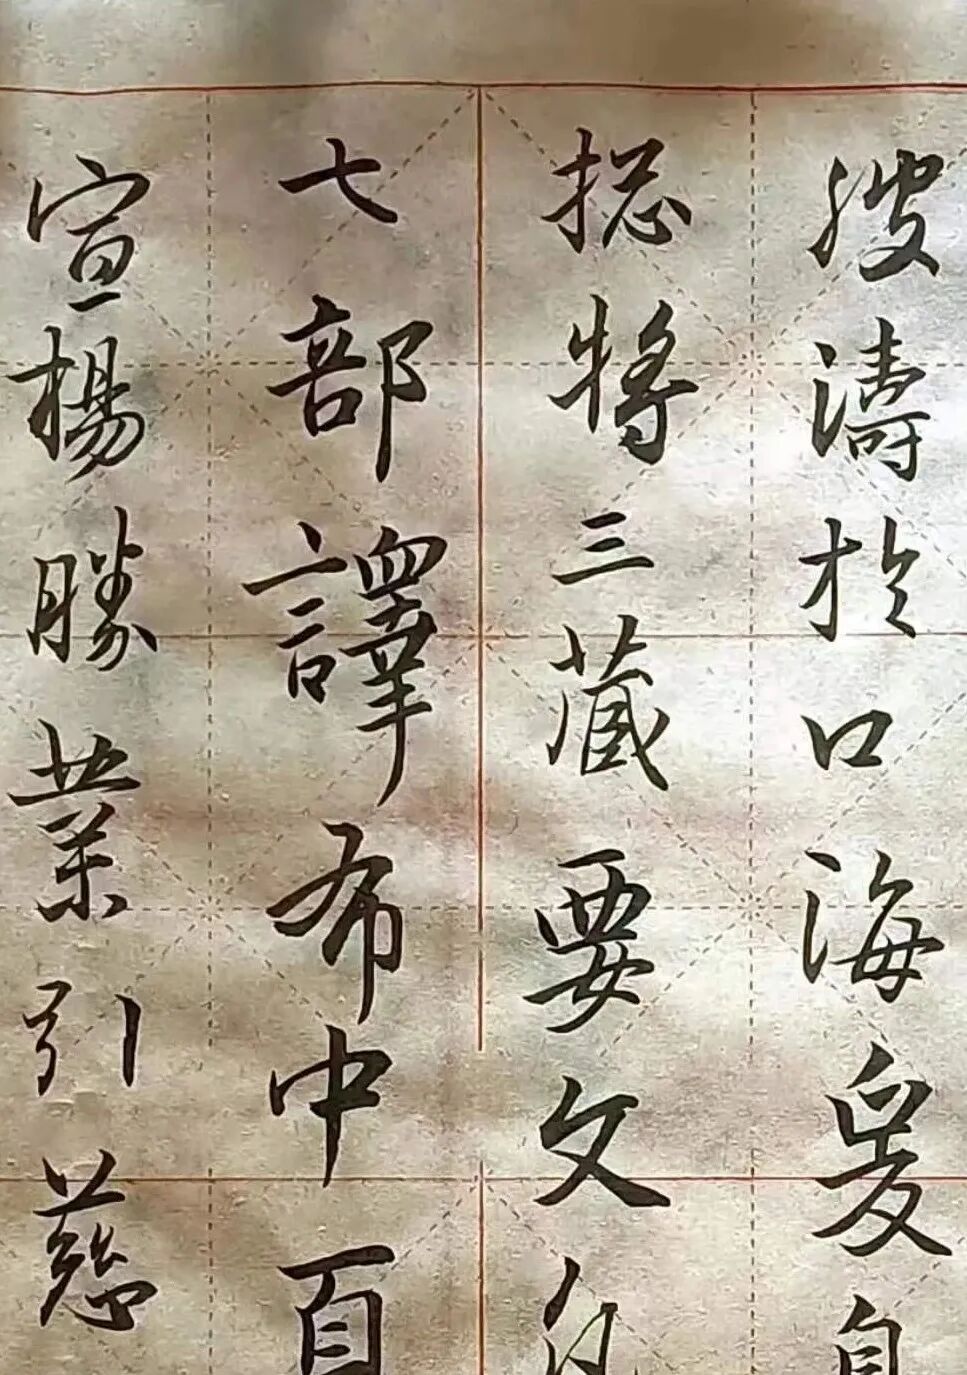 波濤於口海爰自
揔將三藏要文
七部譯布中
宣揚勝業引慈